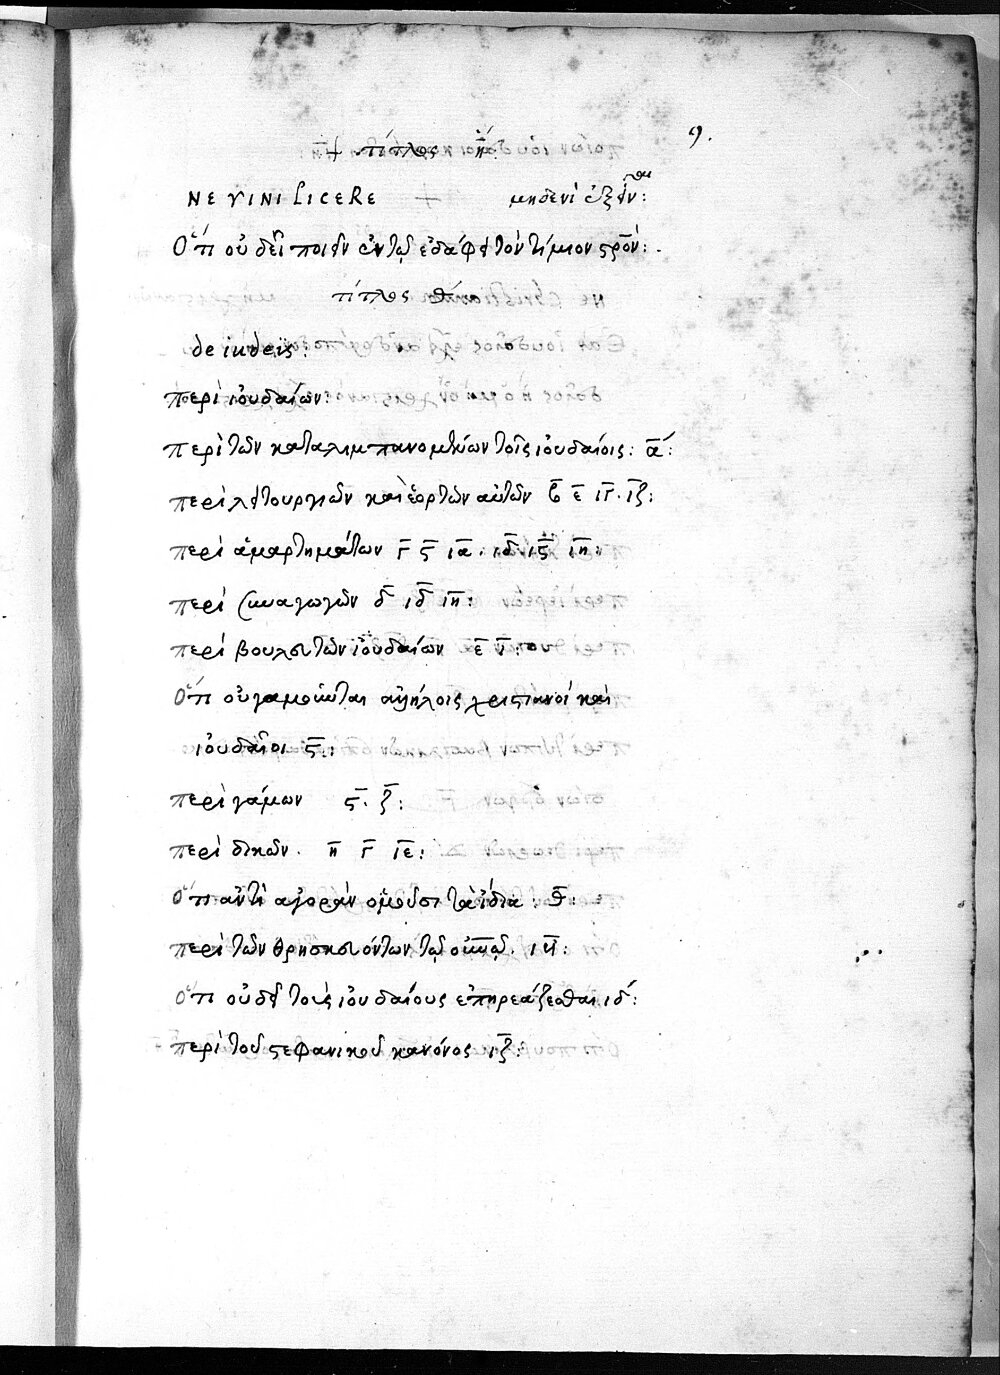 9.
+ τίτλος η̅:
ΝΕ ΥΙΝΙ LICERE + μηδενὶ ἐξεῖν:
Ὅτι οὐ δεῖ ποιεῖν ἐν τῷ ἐδάφει τὸν τίμιον στρο̅ν:
τίτλος θ̅
de iudeis:
περὶ ἰουδαίων:
περὶ τῶν καταλιμπανομένων τοῖς ἰουδαίοις: α̅:
περὶ λειτουργιῶν καὶ ἑορτῶν αὐτῶν β̅ ε̅ ιγ̅. ιζ̅:
περὶ ἁμαρτημάτων γ̅ ϛ̅ ια̅. ιδ̅ ιϛ̅ ιη̅:
περὶ συναγωγῶν δ̅ ιδ̅ ιη̅:
περὶ βουλευτῶν ἰουδαίων ε̅
Ὅτι οὐ γαμοῦνται ἀλλήλοις χριστιανοὶ καὶ
ἰουδαῖοι ϛ̅:
περὶ γάμων ϛ̅. ζ̅:
περὶ δικῶν. η̅ γ̅ ιε̅:
Ὅτι αὐτοὶ ἀγορὰν ὁρίζουσι τὰ ἴδια: θ̅:
περὶ τῶν θρησκευόντων τῷ
Ὅτι οὐ δεῖ τοὺς ἰουδαίους ἐπηρεάζεσθαι ιδ̅:
περὶ τοῦ στεφανικοῦ κανόνος ιζ̅: